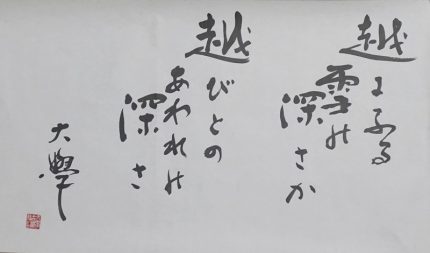 越にふる
雪の
深さか
越びとの
あわれの
深さ
大學